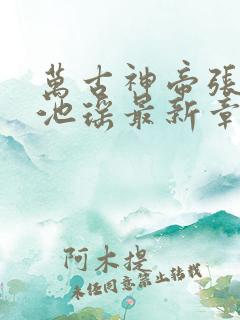 萬古神帝張
池瑤最新章
阿木提
未經同意禁止轉載